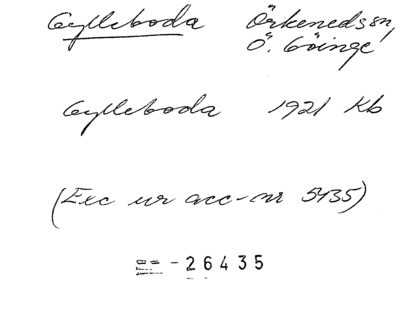 Gylleboda Örkeneds sn,
Ö. Göinge
Gylleboda 1921 Kb
(Exc ur acc-nr 5135)
-26435